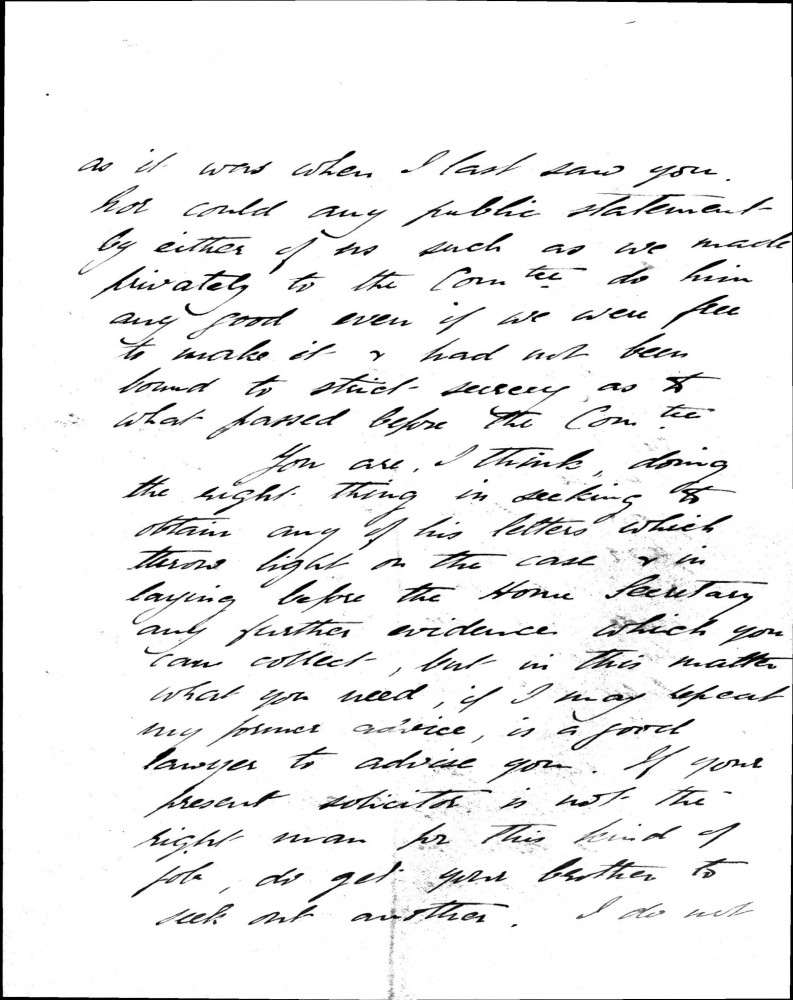 as it was when I last saw you.
Nor could any public statement
by either of us such as we made
privately to the Comtee do him
any good even if we were free
to make it & had not been
bound to strict secrecy as to
what passed before the Comtee
You are, I think, doing
the right thing in seeking to
obtain any of his letters which
throw light on the case & in
laying before the Home Secretary
any further evidence which you
can collect, but in this matter
what you need, if I may repeat
my former advice, is a good
lawyer to advise you. If your
present solicitor is not the
right man for this kind of
job, do get your brother to
seek out another. I do not